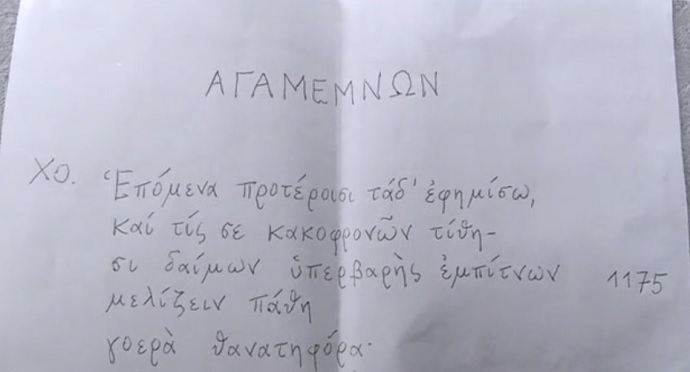 ΑΓΑΜΕΜΝΩΝ
ΧΟ. Ἑπόμενα προτέροισι τάδ' ἐφημίσω,
καί τίς σε κακοφρονῶν τίθη-
σι δαίμων ὑπερβαρὴς ἐμπίτνων 1175
μελίζειν πάθη
γοερὰ θανατηφόρα·